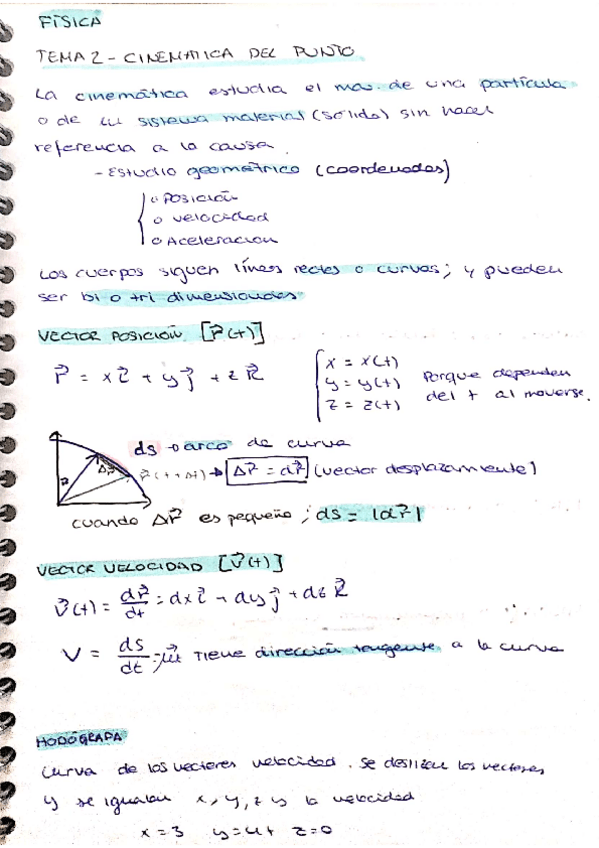 FÍSICA
TEMA 2 - CINEMATICA DEL PUNTO
La cinemática estudia el mov. de una partícula
o de un sistema material (sólido) sin hacer
referencia a la causa.
- Estudio geométrico (coordenadas)
o Posición
o velocidad
o Aceleracion
Los cuerpos siguen líneas rectas o curvas; y pueden
ser bi o tri dimensionales
VECTOR POSICIÓN [r⃗(t)]
r⃗ = x i⃗ + y j⃗ + z k⃗
x = x(t)
y = y(t)
z = z(t)
Porque dependen
del t al moverse.
ds → arco de curva
Δr⃗
r⃗(t+Δt) → Δr⃗ = dr⃗ (vector desplazamiento)
cuando Δr⃗ es pequeño; ds = |dr⃗|
VECTOR VELOCIDAD [v⃗(t)]
v⃗(t) = dr⃗/dt = dx i⃗ + dy j⃗ + dz k⃗
V = ds/dt · u⃗t Tiene dirección tangente a la curva
HODÓGRAFA
Curva de los vectores velocidad. Se deslizan los vectores
y se igualan x, y, z y la velocidad
x=3 y=4t z=0